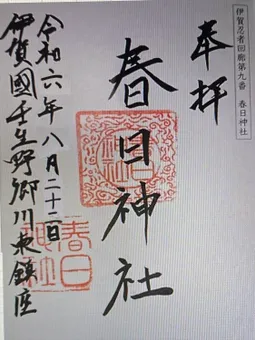 伊賀忍者回廊第九番 春日神社
奉拝
春日神社
令和六年八月二十二日
伊賀國壬生野郷川東鎮座
春日神社